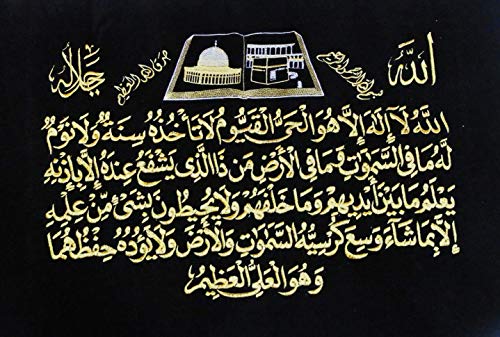 الله
بسم الله الرحمن الرحيم
صدق الله العظيم
جل جلاله
اَللّٰهُ لَآ اِلٰهَ اِلَّا هُوَ الْحَىُّ الْقَيُّومُ لَا تَأْخُذُهُ سِنَةٌ وَلَا نَوْمٌ
لَهُ مَا فِى السَّمٰوَاتِ وَمَا فِى الْاَرْضِ مَنْ ذَا الَّذِى يَشْفَعُ عِنْدَهُ اِلَّا بِاِذْنِهِ
يَعْلَمُ مَا بَيْنَ اَيْدِيهِمْ وَمَا خَلْفَهُمْ وَلَا يُحِيطُونَ بِشَىْءٍ مِنْ عِلْمِهِ
اِلَّا بِمَا شَآءَ وَسِعَ كُرْسِيُّهُ السَّمٰوَاتِ وَالْاَرْضَ وَلَا يَؤُدُهُ حِفْظُهُمَا
وَهُوَ الْعَلِىُّ الْعَظِيمُ